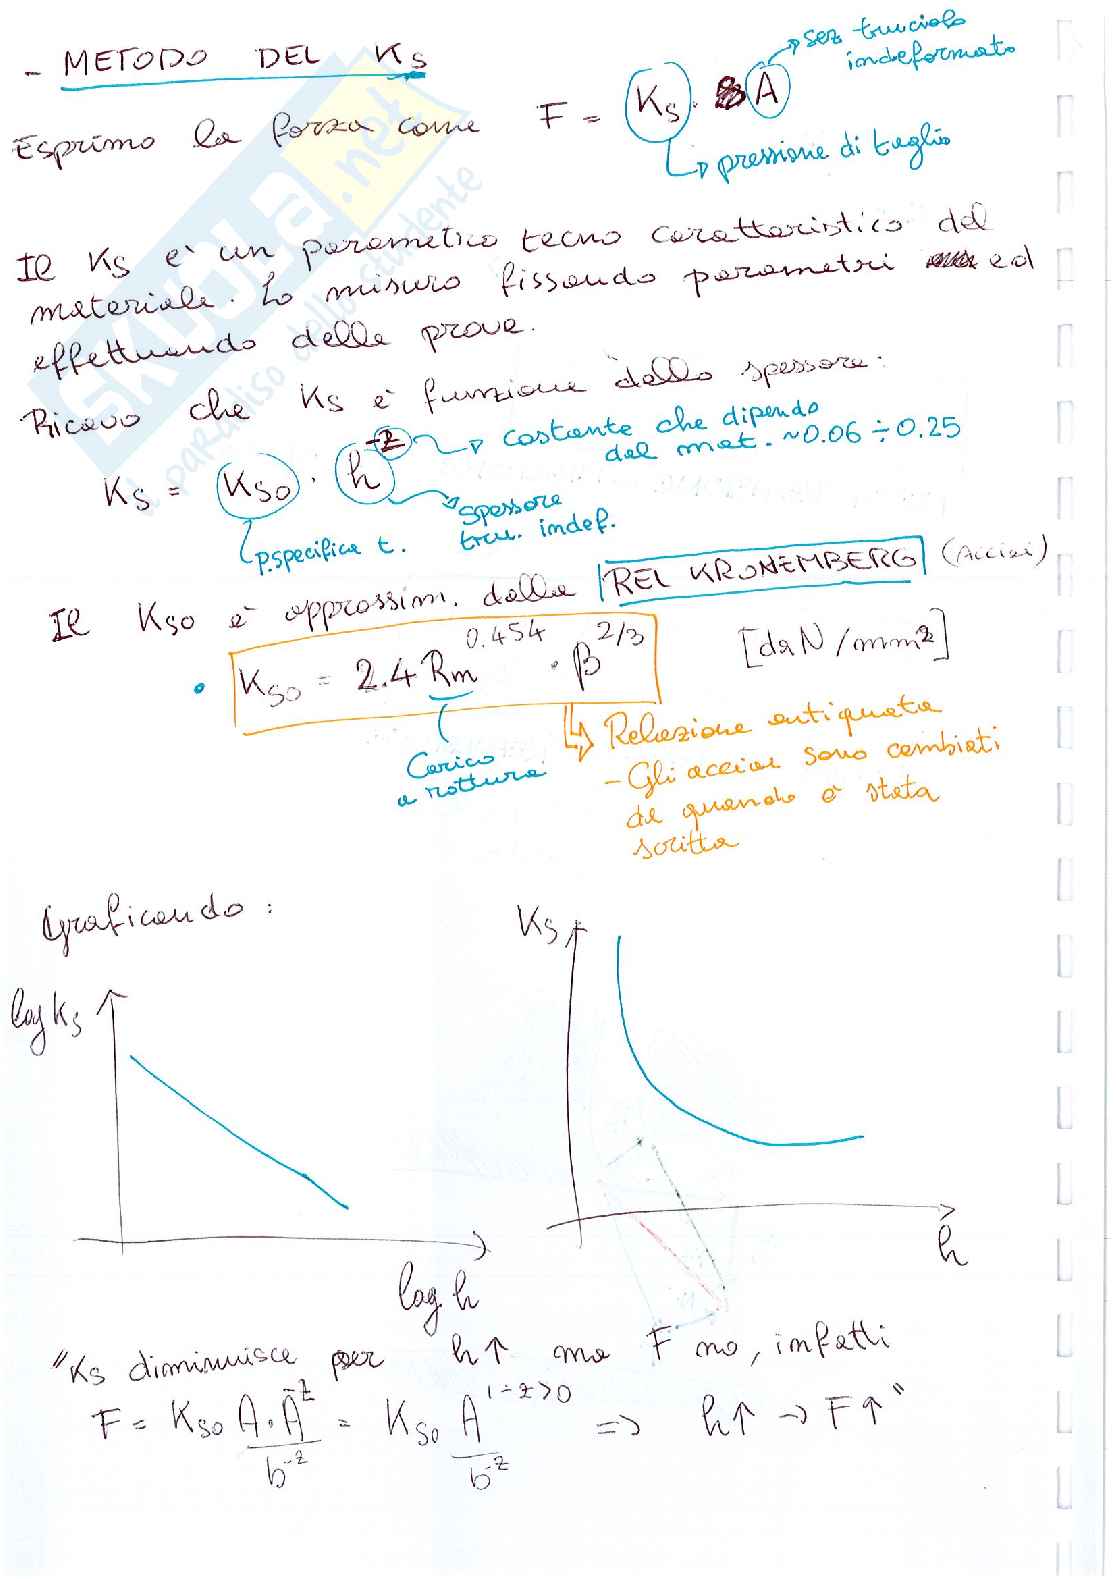 - METODO DEL Ks
Esprimo la forza come F = Ks · A
sez truciolo
indeformato
pressione di taglio
Il Ks è un parametrico tecno caratteristico del
materiale. Lo misuro fissando parametri ed
effettuando delle prove.
Ricavo che Ks è funzione dello spessore:
Ks = Kso · h^-z
costante che dipende
dal mat. ~0.06 ÷ 0.25
spessore
tru. indef.
p.specifica t.
Il Kso è approssim. dalla REL KRONEMBERG (Acciai)
Kso = 2.4 Rm^0.454 · β^2/3 [daN/mm²]
Carico
a rottura
Relazione antiquata
- Gli acciai sono cambiati
da quando è stata
scritta
Graficando:
log Ks
log h
Ks
h
"Ks diminuisce per h↑ ma F no, infatti
F = Kso A·A^-z / b^-z = Kso A^1-z>0 / b^-z => h↑ → F↑"
skuola.net
il paradiso dello studente